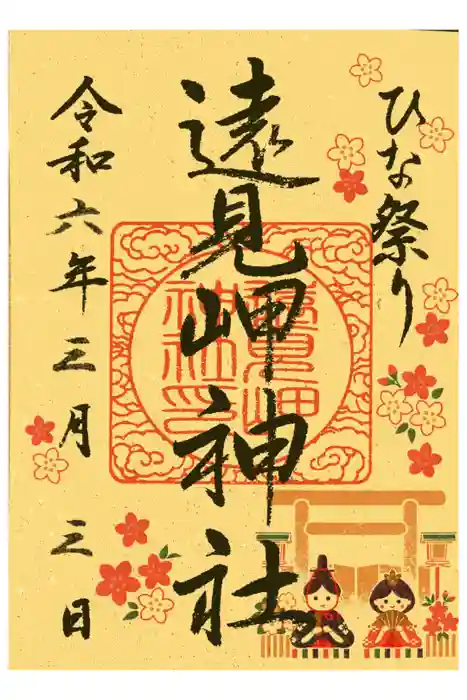 ひな祭り
遠見岬神社
令和六年三月三日
遠見岬
神社印